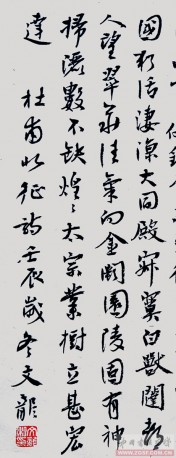 國猶活淒涼大同殿寂寞白獸闥都
人望翠華佳氣向金闕園陵固有神
掃灑數不缺煌煌太宗業樹立甚宏
達 杜甫北征詩壬辰歲冬文龍